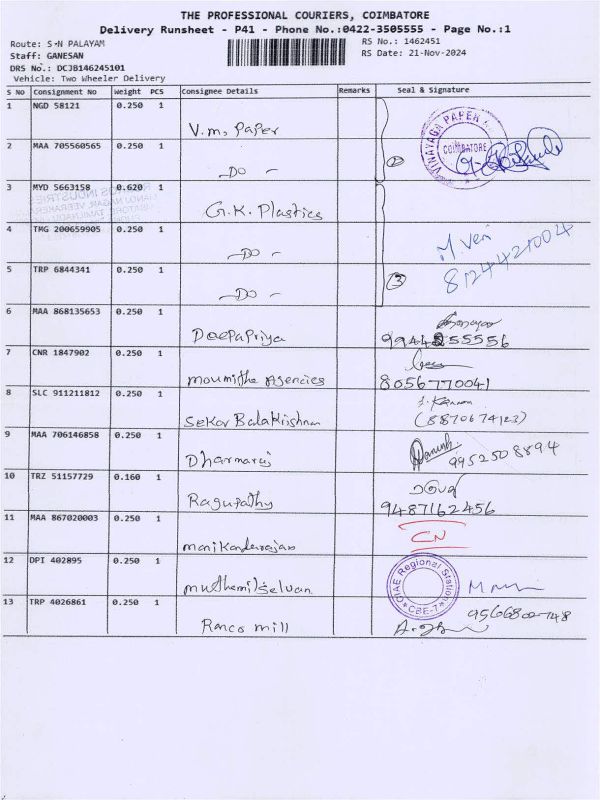 THE PROFESSIONAL COURIERS, COIMBATORE
Delivery Runsheet - P41 - Phone No.:0422-3505555 - Page No.:1
Route: S-N PALAYAM
RS No.: 1462451
Staff: GANESAN
RS Date: 21-Nov-2024
DRS No.: DCJB146245101
Vehicle: Two Wheeler Delivery
S No Consignment No Weight PCS Consignee Details Remarks Seal & Signature
1 NGD 58121 0.250 1
V.m, Paper
VINAYAGA PAPER
COIMBATORE
2 MAA 705560565 0.250 1
- Do -
2
3 MYD 5663158 0.620 1
G.K. Plastics
4 TMG 200659905 0.250 1
- Do -
M. Veni
8124421004
5 TRP 6844341 0.250 1
- Do -
3
6 MAA 868135653 0.250 1
Deepapriya
9944255556
7 CNR 1847902 0.250 1
Moumitha Agencies
8056770041
8 SLC 911211812 0.250 1
Sekar Balakrishnan
9 MAA 706146858 0.250 1
Dharmaraj
9952508894
10 TRZ 51157729 0.160 1
Ragupathy
9487162456
11 MAA 867020003 0.250 1
CN
manikandarajan
12 DPI 402895 0.250 1
muthamilselvan
Regional Station
CBE-7
13 TRP 4026861 0.250 1
Ranco mill